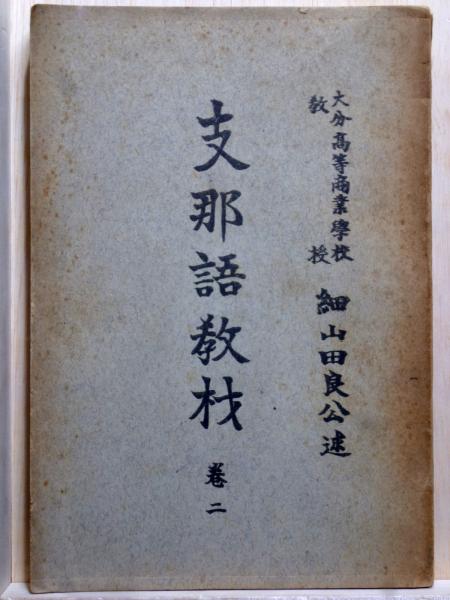 大分高等商業學校
教授
細山田良公述
支那語教材
卷二